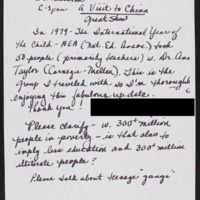 C-Span  A Visit to China
Great Show
In 1979 - The International Year of
the Child - NEA (Nat Ed. Assoc.) took
50 people (primarily teachers) w. Dr Ann
Taylor (Carnegie-Mellon). This is the
group I traveled with so I'm thoroughly
enjoying this fabulous up-date.
Thank you!
Please clarify - w. 300+ million
people in poverty - is that also to
imply less education and 300+ million
illiterate people?
Please talk about teenage "gangs"